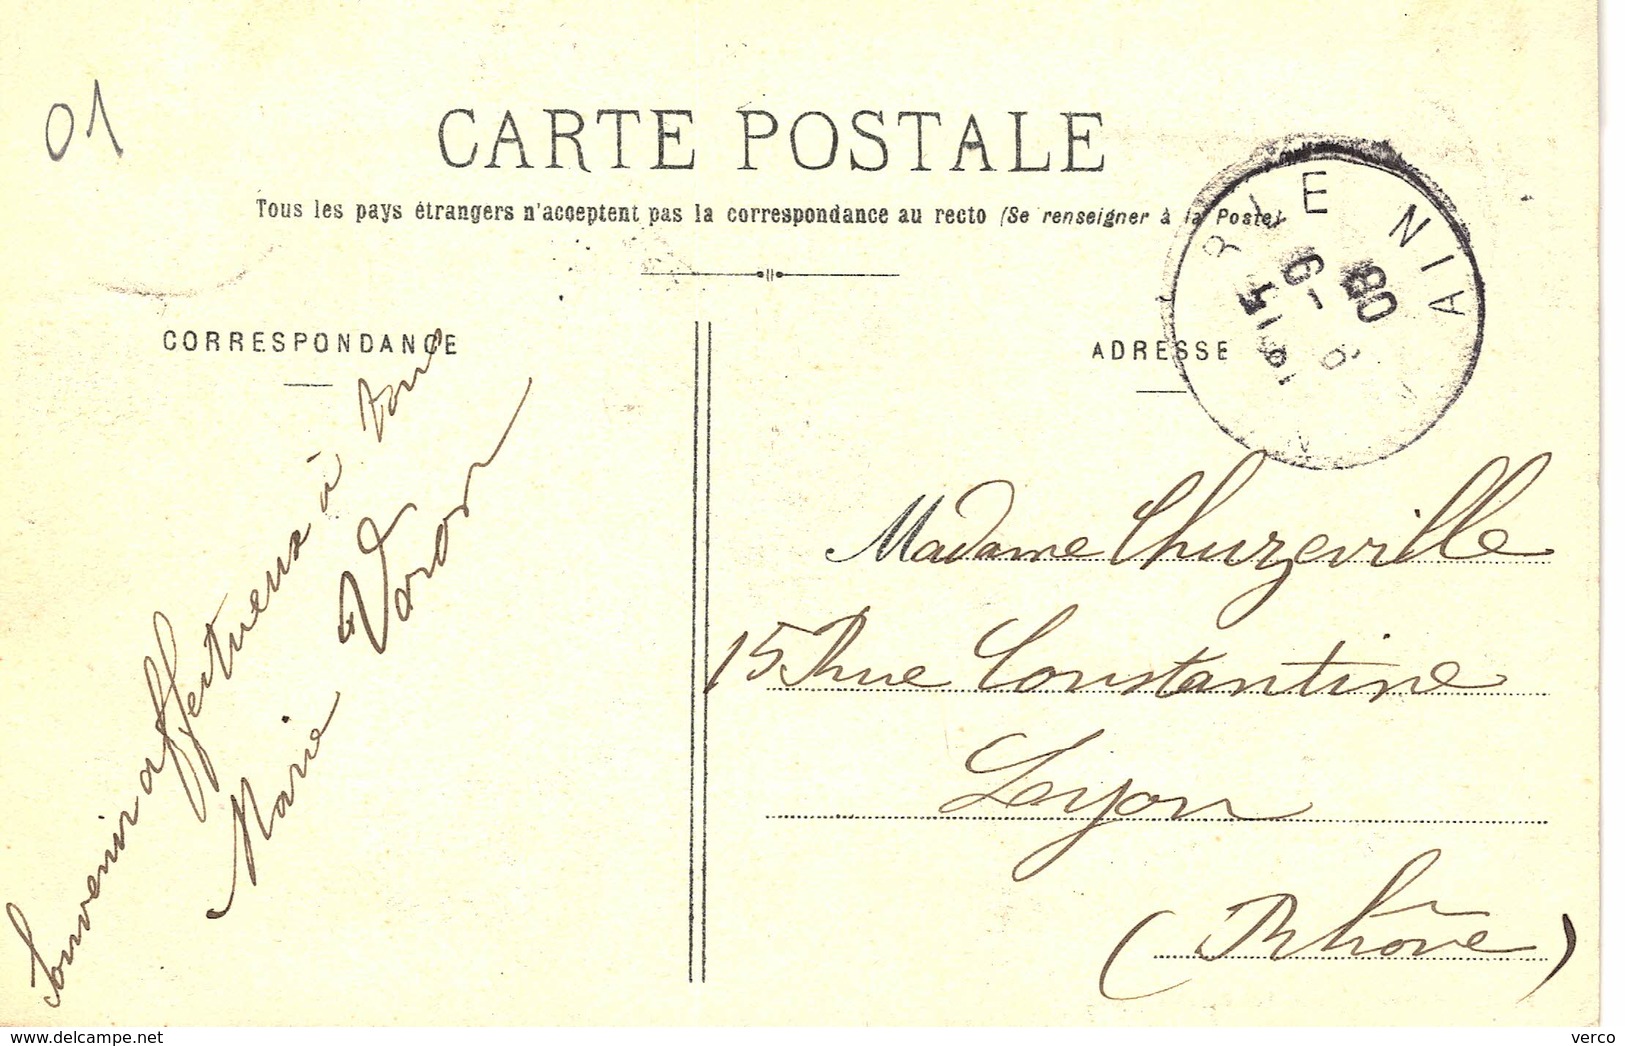 01
CARTE POSTALE
Tous les pays étrangers n'acceptent pas la correspondance au recto (Se renseigner à la Poste)
CORRESPONDANCE
ADRESSE
Souvenir affectueux à tous
Marie Voron
Madame Thuzeville
15 Rue Constantine
Lyon
(Rhône)
AIN
08
delcampe.net
verco